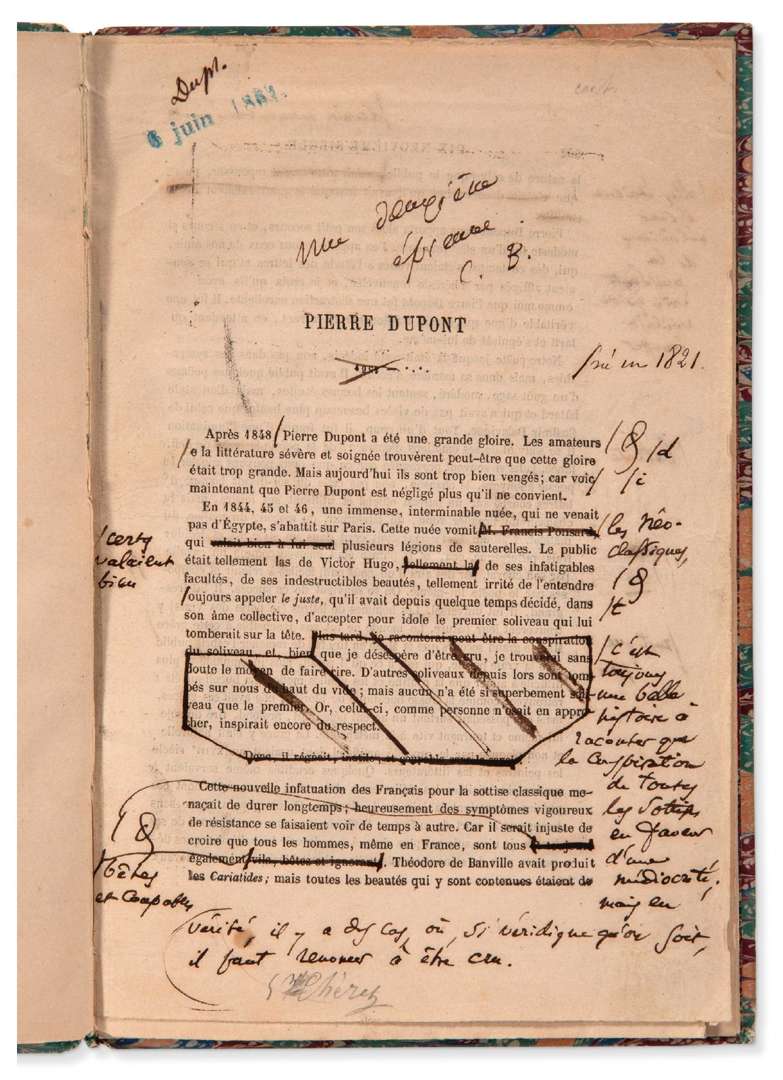 Dupt.
6 juin 1861.
une deuxième
épreuve.
C. B.
PIERRE DUPONT
/né en 1821.
Après 1848 / Pierre Dupont a été une grande gloire. Les amateurs
e la littérature sévère et soignée trouvèrent peut-être que cette gloire
/d
était trop grande. Mais aujourd'hui ils sont trop bien vengés; car voic
/i
maintenant que Pierre Dupont est négligé plus qu'il ne convient.
En 1844, 45 et 46, une immense, interminable nuée, qui ne venait
pas d'Égypte, s'abattit sur Paris. Cette nuée vomit M. Francis Ponsard,
/les néo-
classiques,
qui valait bien à lui seul plusieurs légions de sauterelles. Le public
/certes
valaient
bien
était tellement las de Victor Hugo, tellement las de ses infatigables
facultés, de ses indestructibles beautés, tellement irrité de l'entendre
oujours appeler le juste, qu'il avait depuis quelque temps décidé, dans
/t
son âme collective, d'accepter pour idole le premier soliveau qui lui
tomberait sur la tête. Plus tard, je raconterai peut-être la conspiration
du soliveau et, bien que je désespère d'être cru, je trouverai sans
doute le moyen de faire rire. D'autres soliveaux depuis lors sont tom-
bés sur nous du haut du vide; mais aucun n'a été si superbement soli-
veau que le premier. Or, celui-ci, comme personne n'osait en appro-
cher, inspirait encore du respect.
Donc, il régnait, inutile, et
/c'est
toujours
une belle
histoire à
raconter que
la conspiration
de toutes
les sottises
en faveur
d'une
médiocrité;
mais en
vérité, il y a des cas où, si véridique qu'on soit,
il faut renoncer à être cru.
Cette nouvelle infatuation des Français pour la sottise classique me-
naçait de durer longtemps; heureusement des symptômes vigoureux
de résistance se faisaient voir de temps à autre. Car il serait injuste de
croire que tous les hommes, même en France, sont tous et toujours
également vils, bêtes et ignorans. Théodore de Banville avait produit
les Cariatides; mais toutes les beautés qui y sont contenues étaient de
/bêtes
et coupables